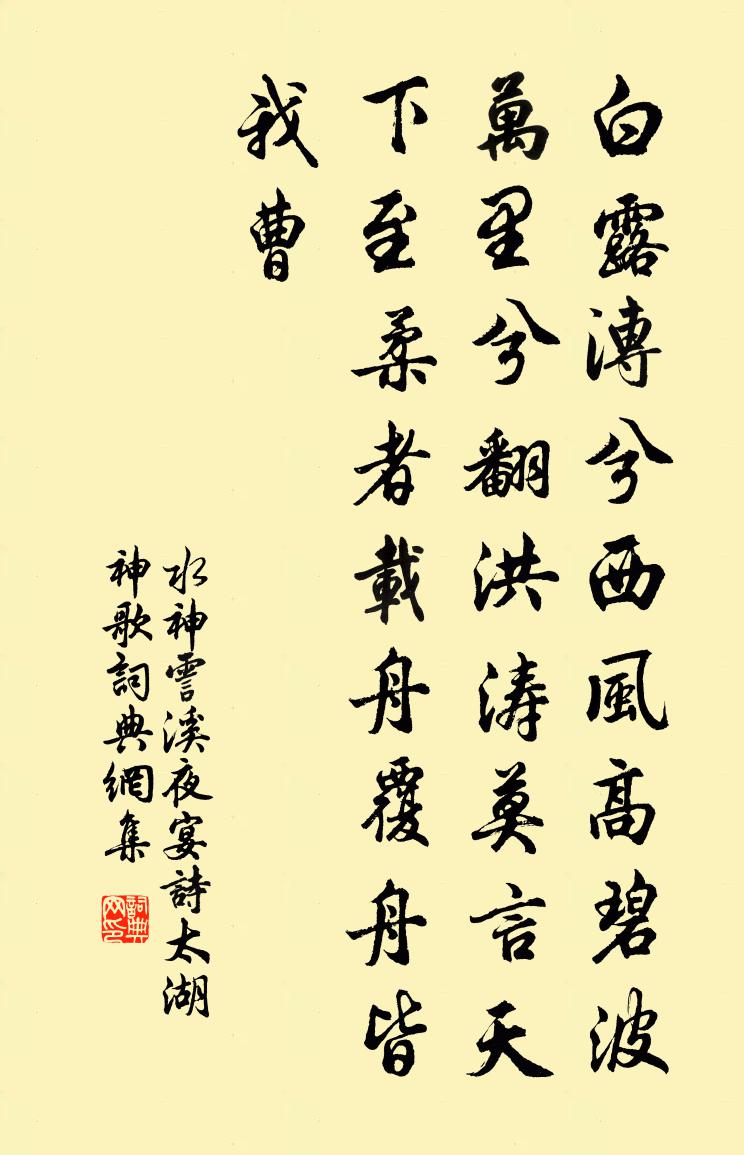 白露溥兮西風高碧波
萬里兮翻洪濤莫言天
下至柔者載舟覆舟皆
我曹
水神霅溪夜宴詩太湖
神歌詞典網集
詞典网印